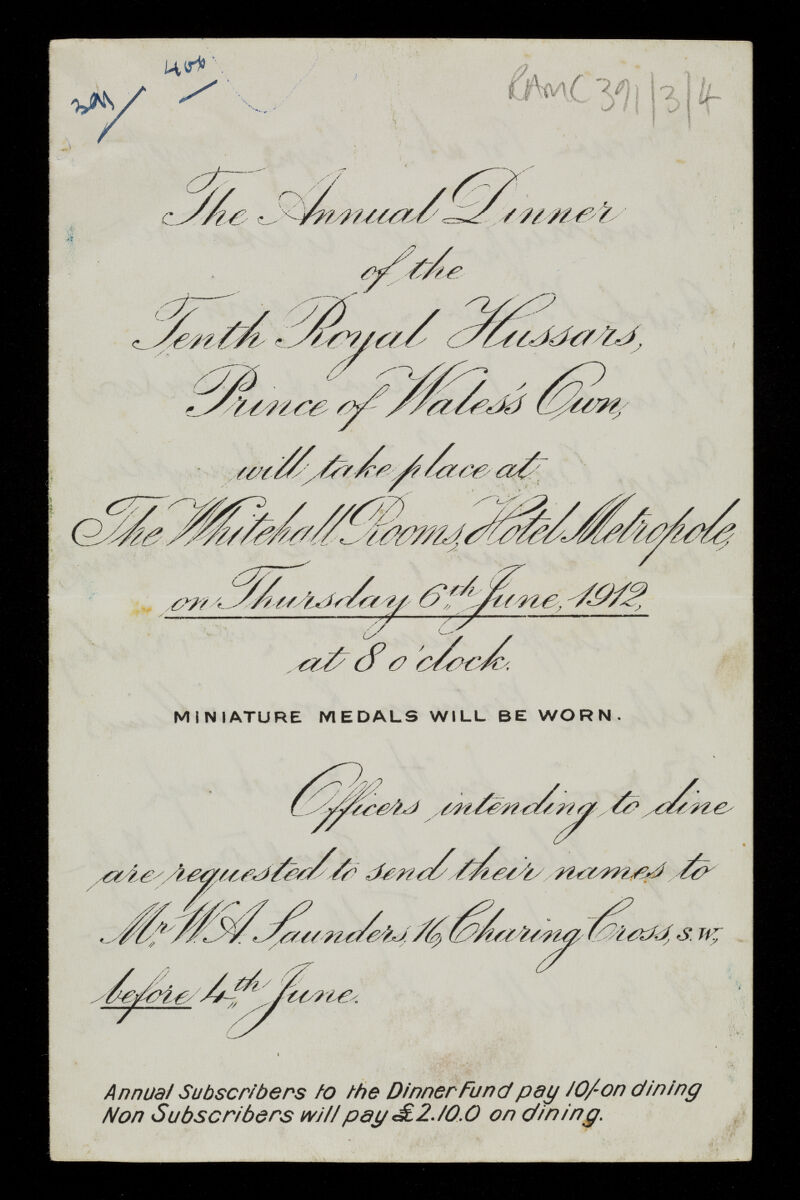 400
RAMC 391/3/4
391
The Annual Dinner
of the
Tenth Royal Hussars,
Prince of Wales's Own,
will take place at
The Whitehall Rooms, Hotel Metropole,
on Thursday 6th June, 1912,
at 8 o'clock.
MINIATURE MEDALS WILL BE WORN.
Officers intending to dine
are requested to send their names to
Mr. W. A. Saunders, 16, Charing Cross, S.W.,
before 4th June.
Annual Subscribers to the Dinner Fund pay 10/- on dining
Non Subscribers will pay £2.10.0 on dining.